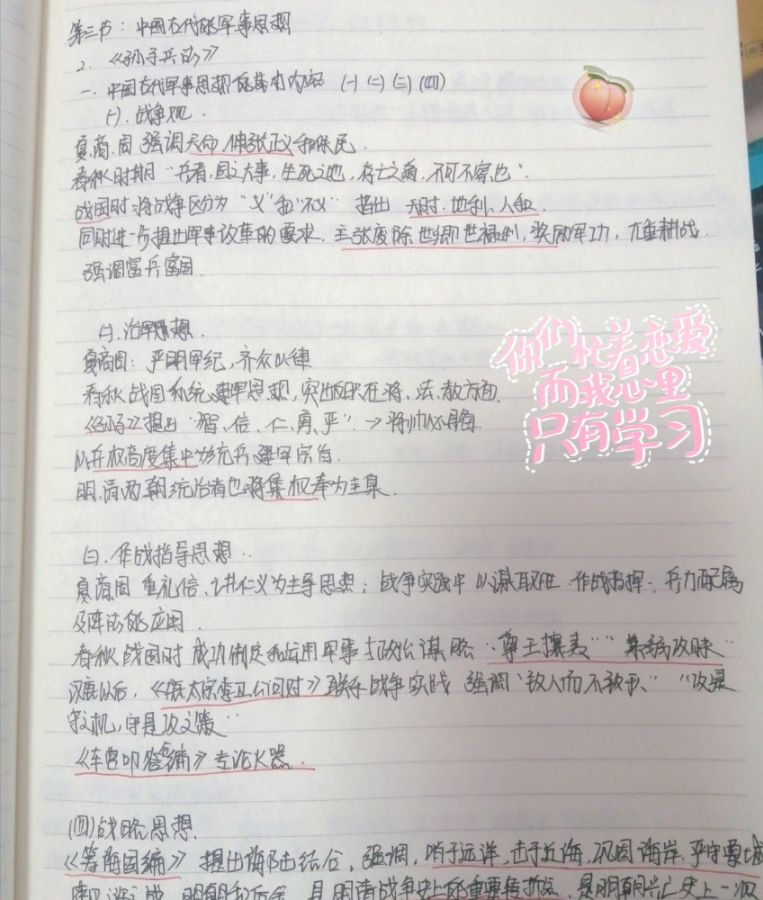 第二节：中国古代的军事思想
2. 《孙子兵法》
一. 中国古代军事思想的基本内容 (一)(二)(三)(四)
(一). 战争观.
夏.商.周 强调天命 伸张正义和保民.
春秋时期 "兵者,国之大事,生死之地,存亡之道,不可不察也".
战国时.将战争区分为"义"和"不义" 提出 天时.地利.人和.
同时进一步提出军事改革的要求. 主张废除世卿世禄制,奖励军功,尤重耕战.
强调富兵富国.
治军思想.
夏商周: 严明军纪,齐众以律
春秋战国系统建军思想,突出在将、法、教方面.
提出"智、信、仁、勇、严". →将帅必具备.
以兵权高度集中为统兵、建军宗旨.
明.清两朝统治者也将集权奉为圭臬.
作战指导思想.
夏商周 重礼信、讲仁义为主导思想; 战争实践中 以谋取胜 作战指挥. 兵力配属
及阵法的应用.
春秋战国时 成功制定和运用军事与政治谋略 "尊王攘夷"
汉唐以后,《唐太宗李卫公问对》联系战争实践 强调"致人而不致于人" "攻是
守之机,守是攻之策"
《车营叩答合编》专论火器.
(四)战略思想.
《筹海图编》 提出海陆结合, 强调, 哨于远洋,击于近海,巩固海岸.严守要城
是明清战争史上的重要转折点, 是明朝兴亡史上一次
你们忙着恋爱
而我心里
只有学习